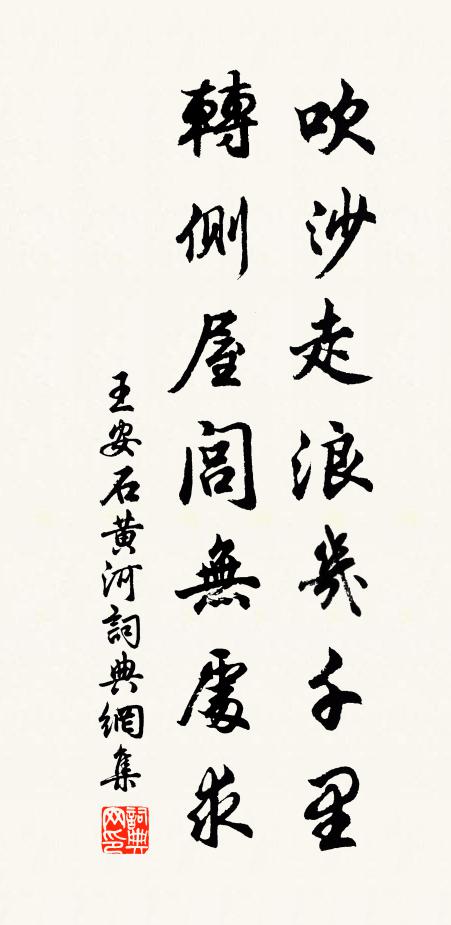 吹沙走浪幾千里
轉側屋閭無處求
王安石黃河詞典網集
詞典网印